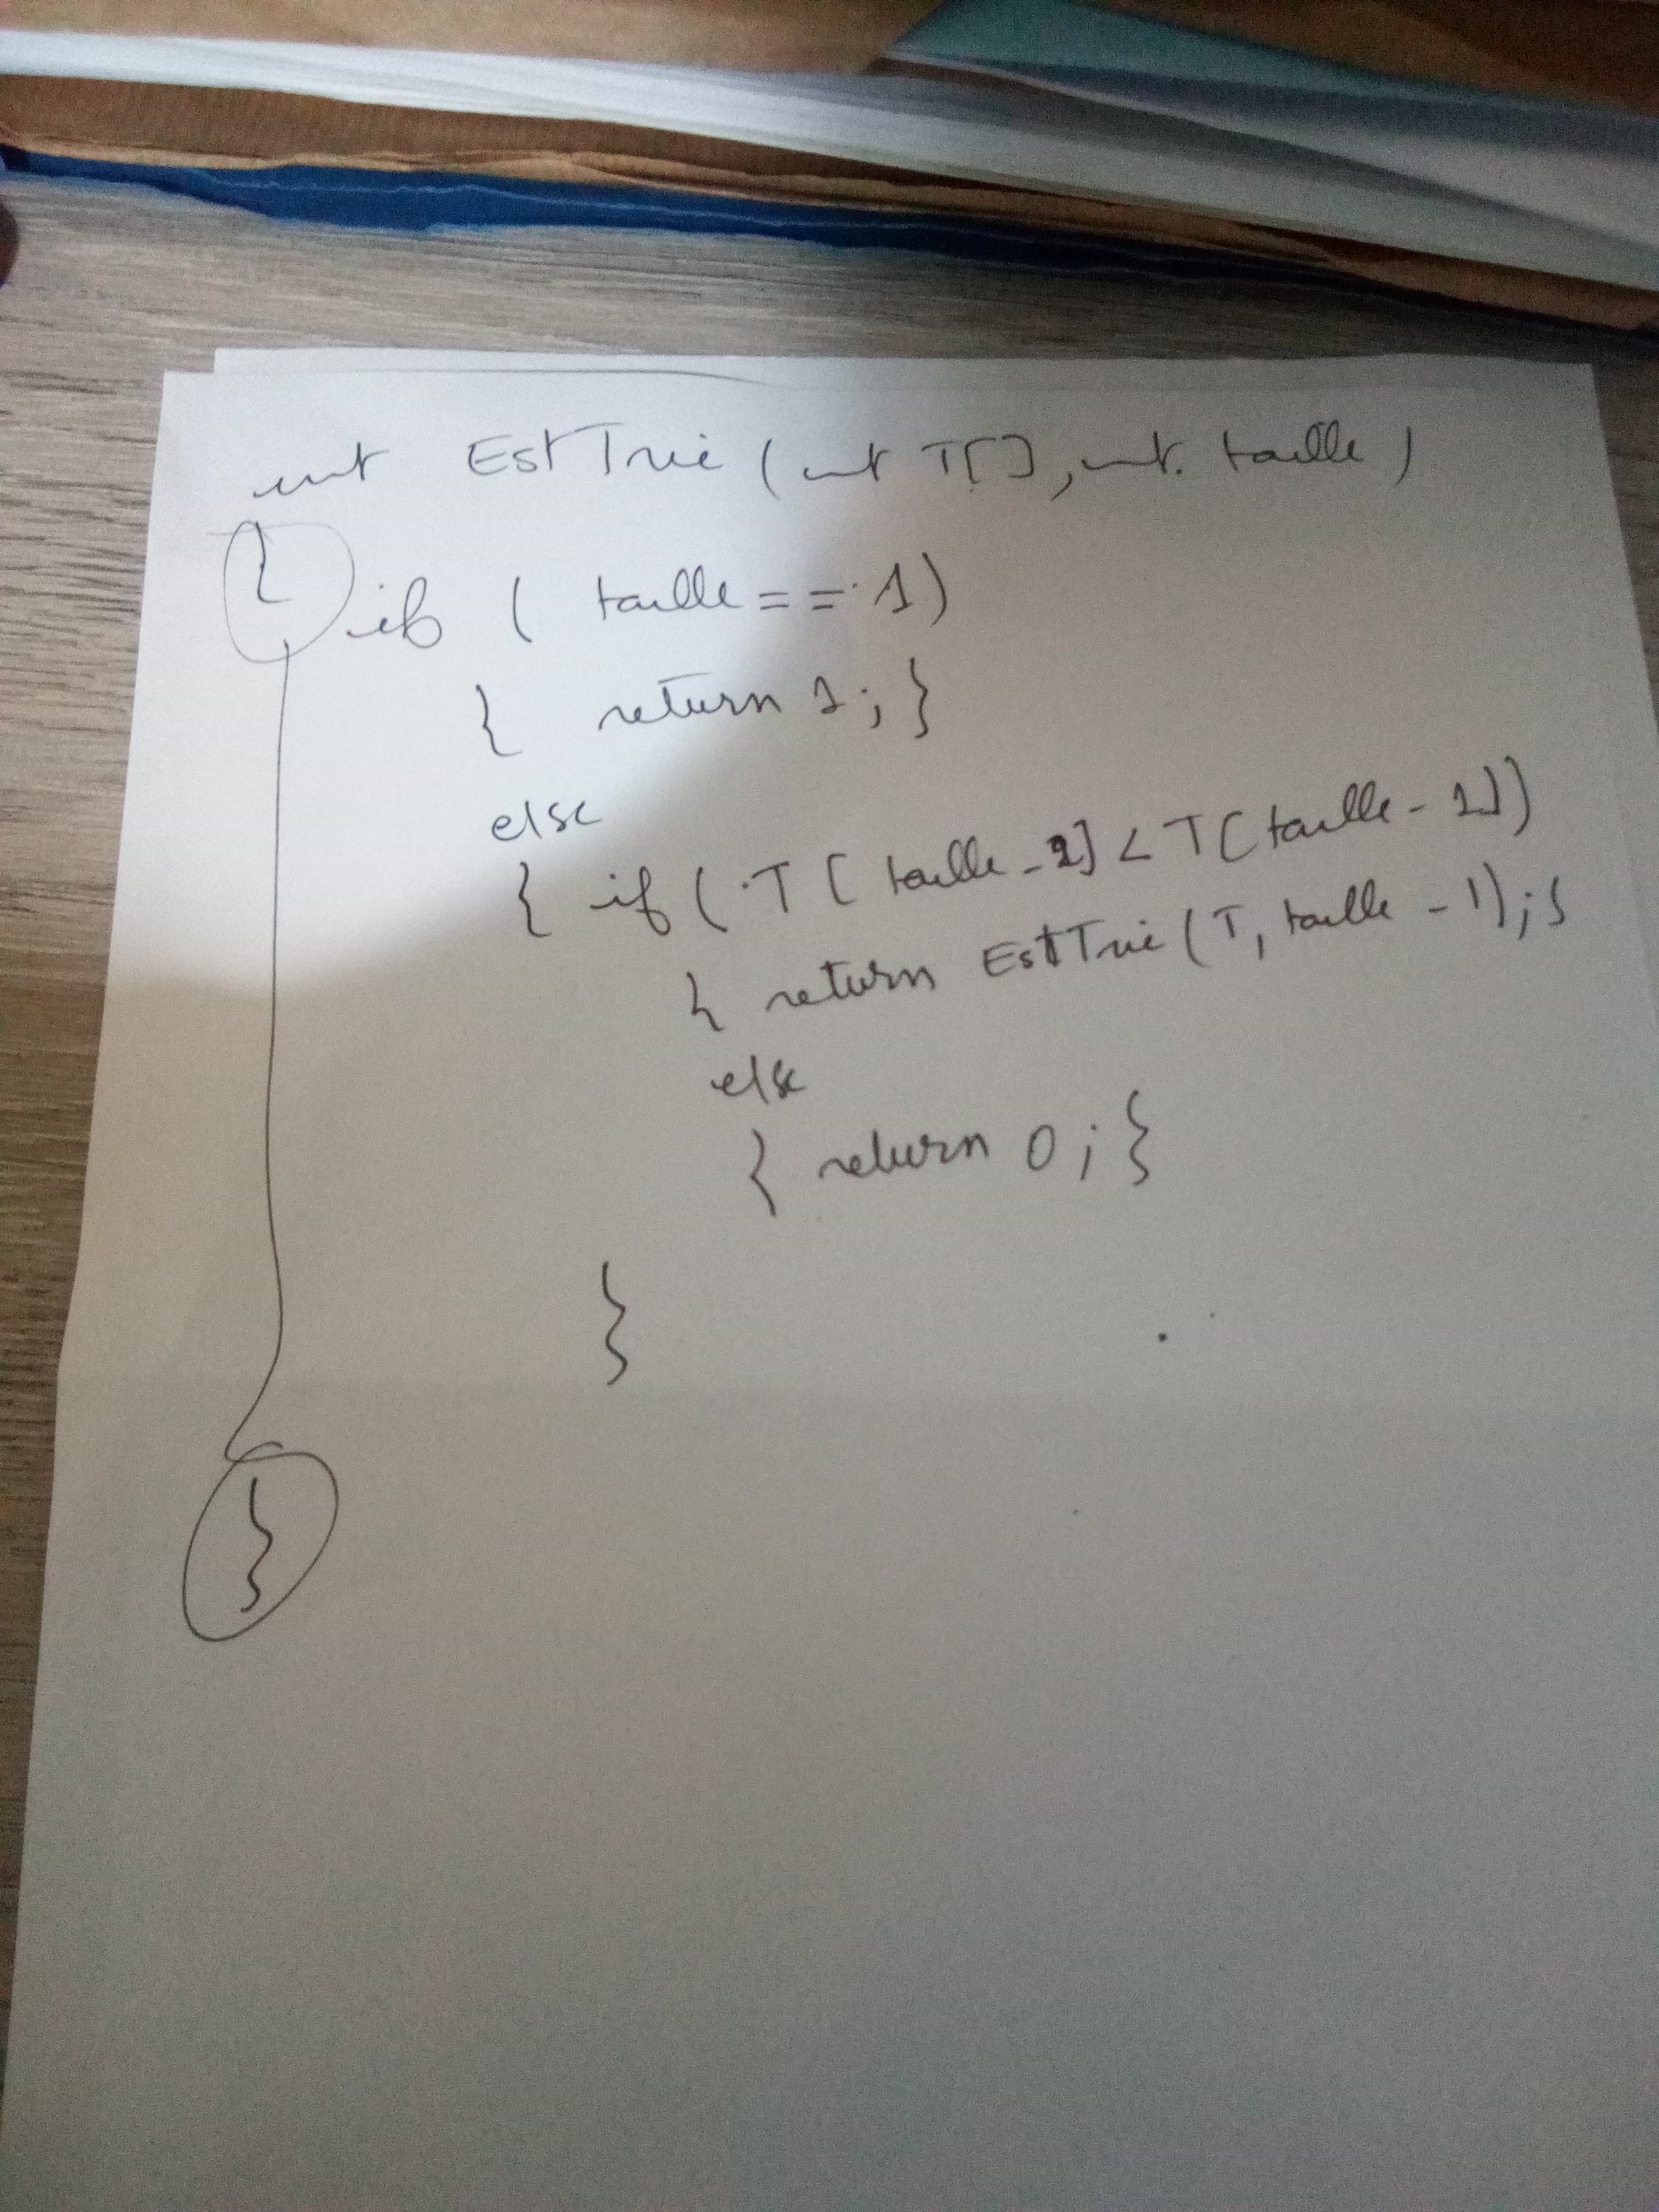 int EstTrie (int T[], int taille)
{
if ( taille == 1)
{ return 1; }
else
{ if ( T [ taille - 2] < T [ taille - 1])
{ return EstTrie (T, taille - 1); }
else
{ return 0; }
}
}